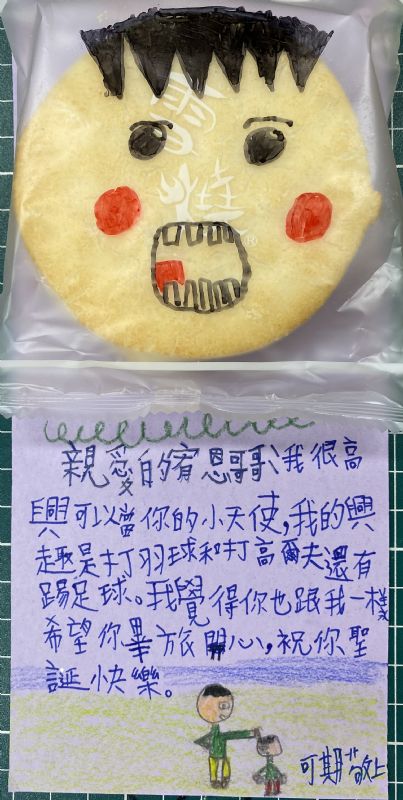 雪烤®
親愛的宥恩哥哥、我很高
興可以當你的小天使,我的興
趣是打羽球和打高爾夫還有
踢足球。我覺得你也跟我一樣
希望你畢旅開心,祝你聖
誕快樂。
可期敬上